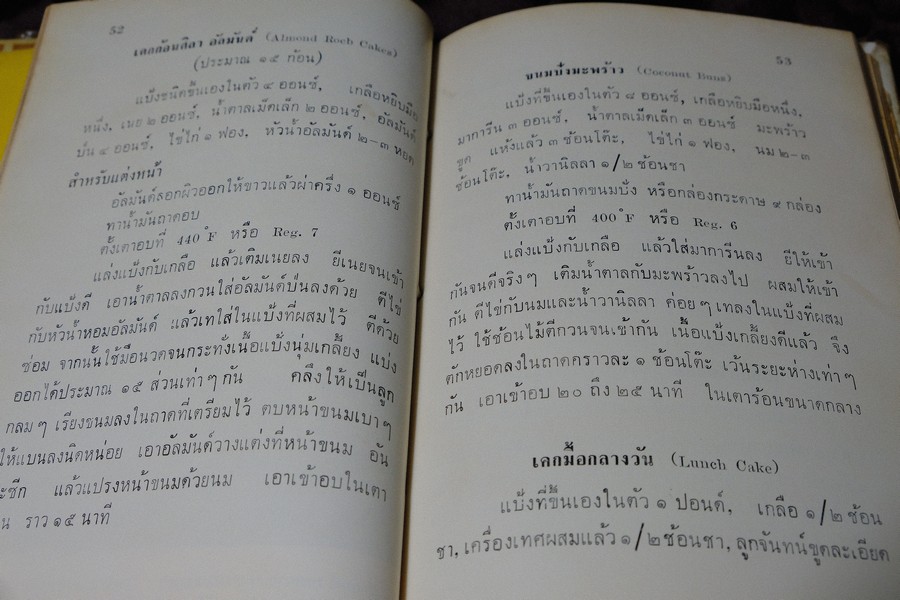 52
เคกก้อนศิลา อัลมันด์ (Almond Roch Cakes)
(ประมาณ ๑๕ ก้อน)
แป้งชนิดขึ้นเองในตัว ๔ ออนซ์, เกลือหยิบมือ
หนึ่ง, เนย ๒ ออนซ์, น้ำตาลเม็ดเล็ก ๒ ออนซ์, อัลมันด์
ป่น ๔ ออนซ์, ไข่ไก่ ๑ ฟอง, หัวน้ำอัลมันด์ ๒–๓ หยด
สำหรับแต่งหน้า
อัลมันด์ลอกผิวออกให้ขาวแล้วผ่าครึ่ง ๑ ออนซ์
ทาน้ำมันถาดอบ
ตั้งเตาอบที่ 440°F หรือ Reg. 7
แล่งแป้งกับเกลือ แล้วเติมเนยลง ยีเนยจนเข้า
กับแป้งดี เอาน้ำตาลลงกวนใส่อัลมันด์ป่นลงด้วย ตีไข่
กับหัวน้ำหอมอัลมันด์ แล้วเทใส่ในแป้งที่ผสมไว้ ตีด้วย
ซ่อม จากนั้นใช้มือนวดจนกระทั่งเนื้อแป้งนุ่มเกลี้ยง แบ่ง
ออกได้ประมาณ ๑๕ ส่วนเท่าๆกัน คลึงให้เป็นลูก
กลมๆ เรียงขนมลงในถาดที่เตรียมไว้ ตบหน้าขนมเบาๆ
ให้แบนลงนิดหน่อย เอาอัลมันด์วางแต่งที่หน้าขนม อัน
ะซีก แล้วแปรงหน้าขนมด้วยนม เอาเข้าอบในเตา
น ราว ๑๕ นาที
53
ขนมบั๋วมะพร้าว (Coconut Buns)
แป้งที่ขึ้นเองในตัว ๘ ออนซ์, เกลือหยิบมือหนึ่ง,
มาการีน ๓ ออนซ์, น้ำตาลเม็ดเล็ก ๓ ออนซ์ มะพร้าว
ขูด แห้งแล้ว ๓ ช้อนโต๊ะ, ไข่ไก่ ๑ ฟอง, นม ๒–๓
ช้อนโต๊ะ, น้ำวานิลลา ๑/๒ ช้อนชา
ทาน้ำมันถาดขนมบั่ง หรือกล่องกระดาษ ๙ กล่อง
ตั้งเตาอบที่ 400°F หรือ Reg. 6
แล่งแป้งกับเกลือ แล้วใส่มาการีนลง ยีให้เข้า
กันจนดีจริงๆ เติมน้ำตาลกับมะพร้าวลงไป ผสมให้เข้า
กัน ตีไข่กับนมและน้ำวานิลลา ค่อยๆเทลงในแป้งที่ผสม
ไว้ ใช้ช้อนไม้ตีกวนจนเข้ากัน เนื้อแป้งเกลี้ยงดีแล้ว จึง
ตักหยอดลงในถาดคราวละ ๑ ช้อนโต๊ะ เว้นระยะห่างเท่าๆ
กัน เอาเข้าอบ ๒๐ ถึง ๒๕ นาที ในเตาร้อนขนาดกลาง
เคกมื้อกลางวัน (Lunch Cake)
แป้งที่ขึ้นเองในตัว ๑ ปอนด์, เกลือ ๑/๒ ช้อน
ชา, เครื่องเทศผสมแล้ว ๑/๒ ช้อนชา, ลูกจันทน์ขูดละเอียด